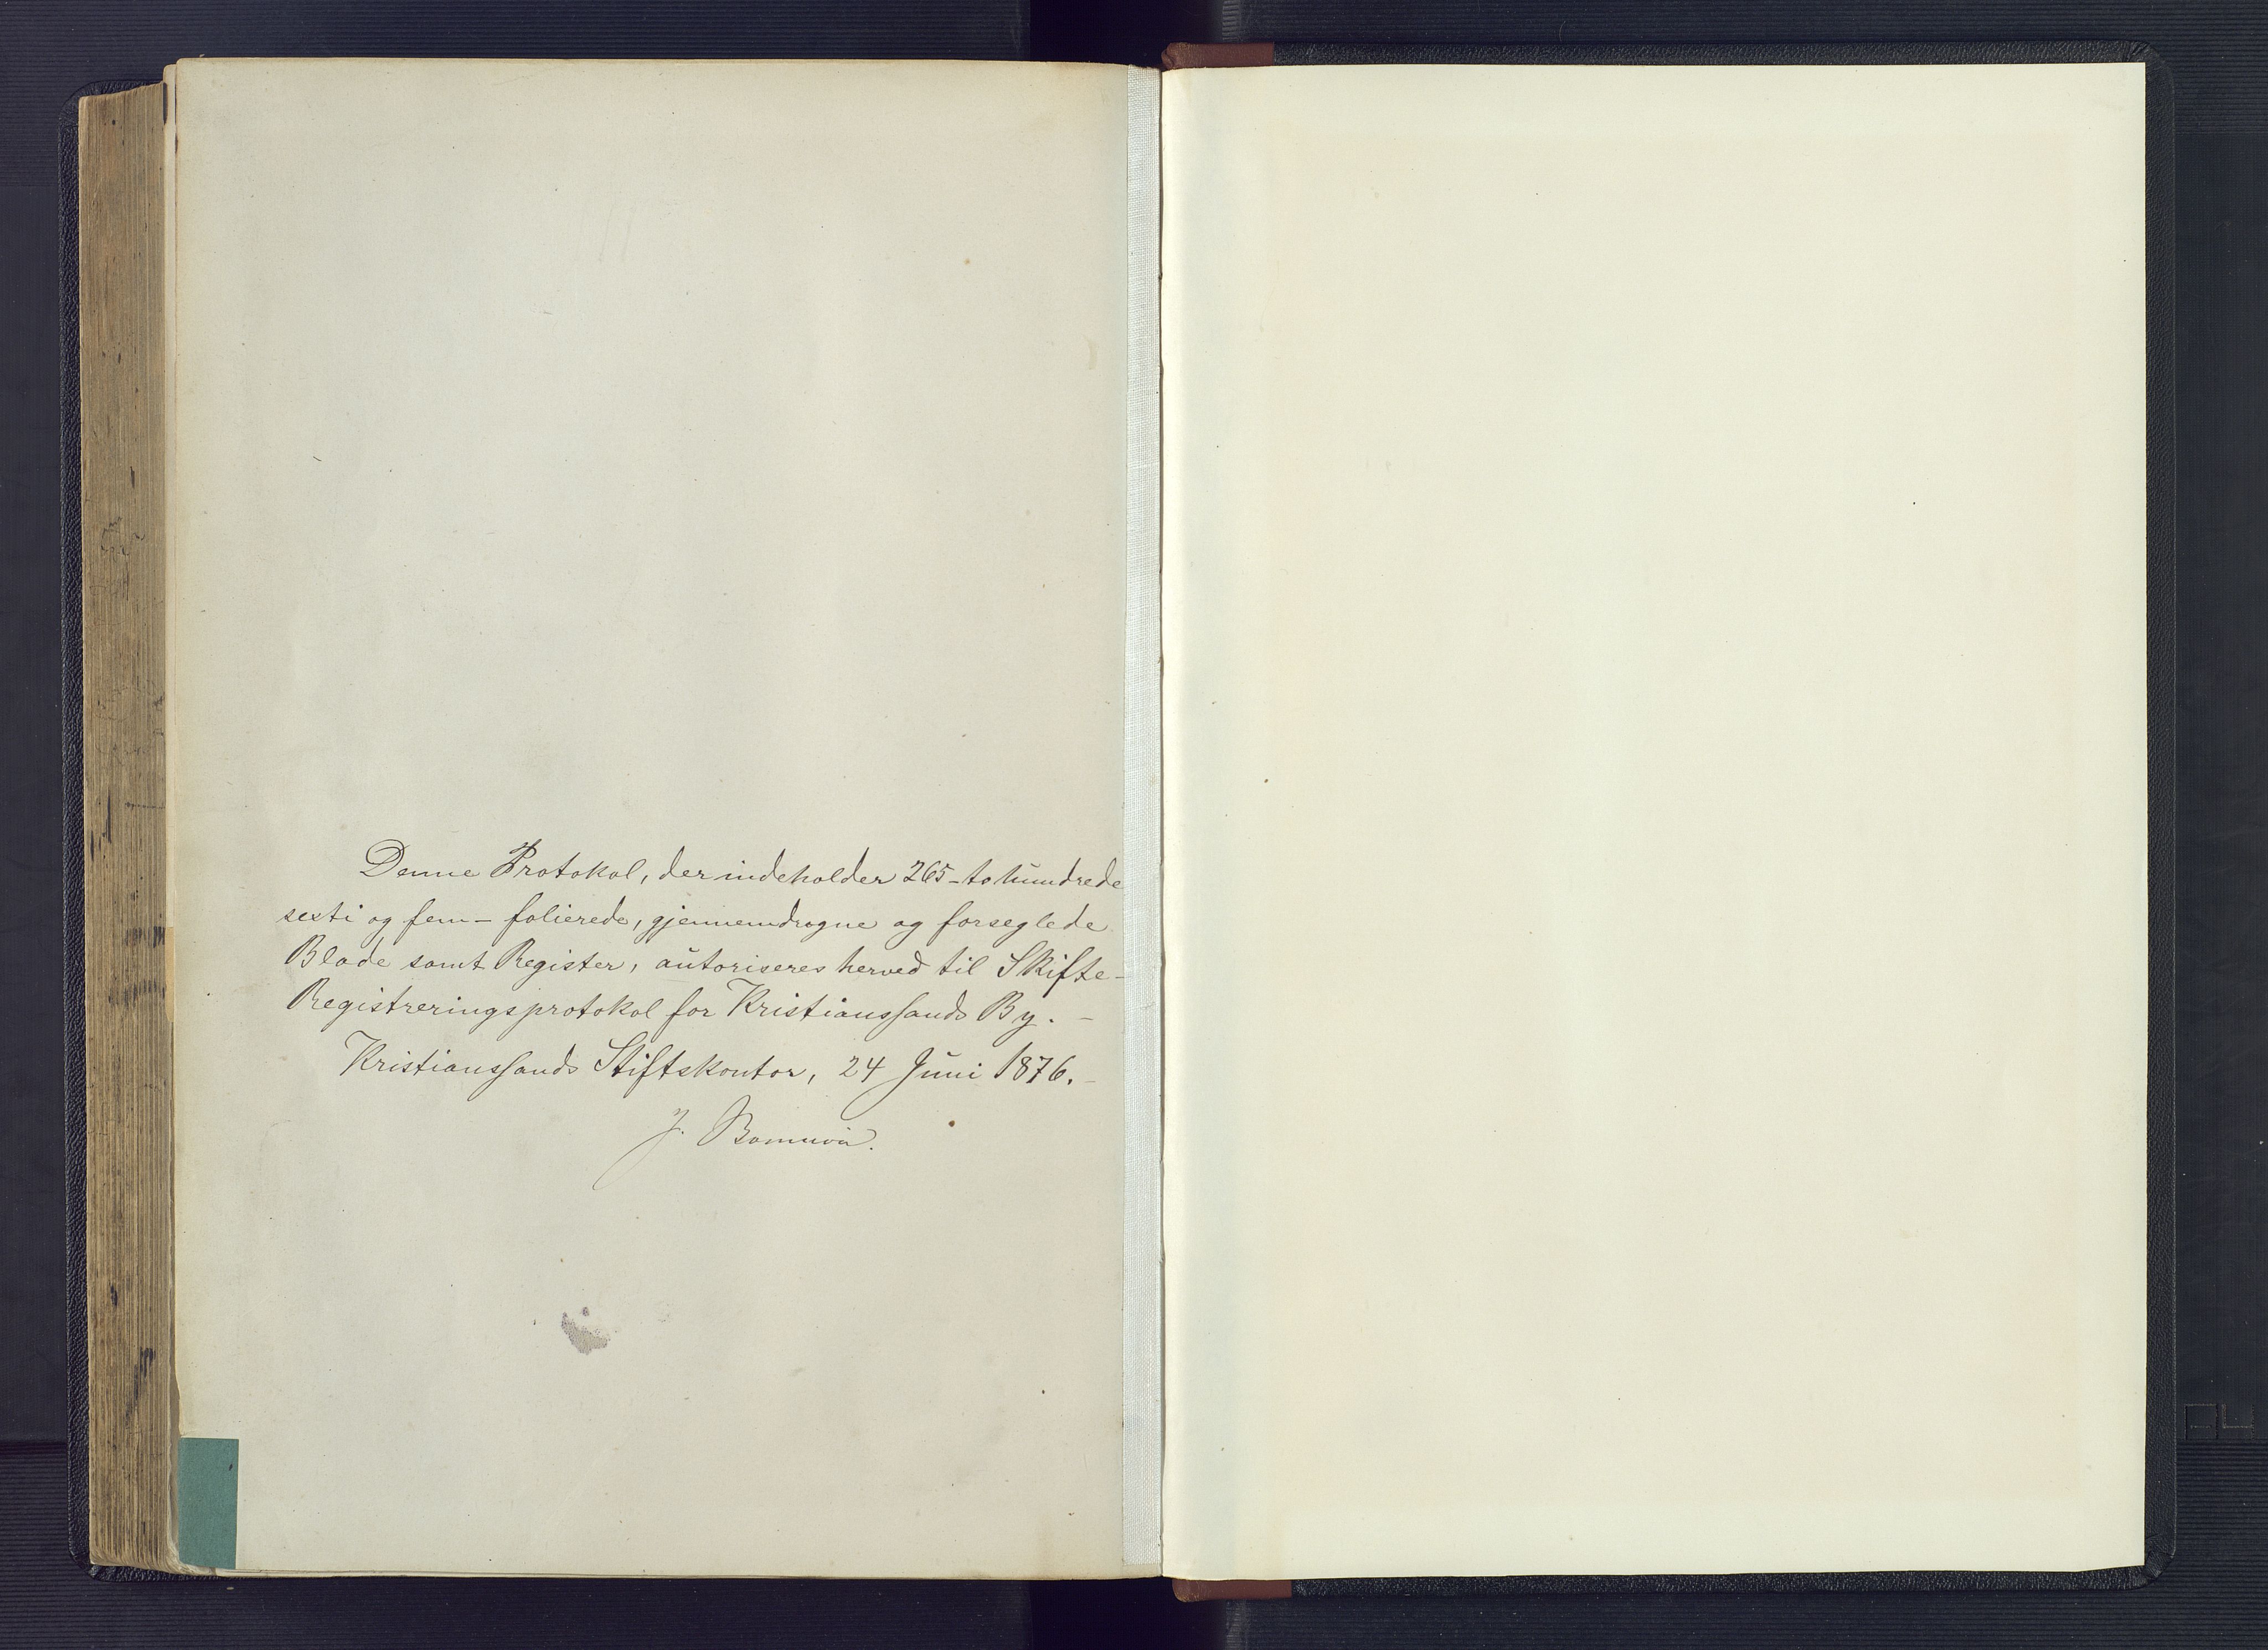 Denne Protokol, der indeholder 265 - to hundrede
sexti og fem - folierede, gjennemdragne og forseglede
Blade samt Register, autoriseres herved til Skifte-
Registreringsprotokol for Kristianssands By. -
Kristianssands Stiftskontor, 24 Juni 1876. -
J.